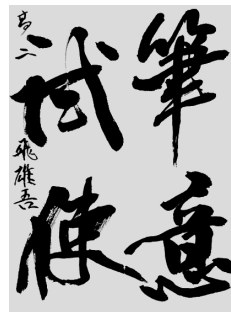 筆意
試使
高二 飛雄吾